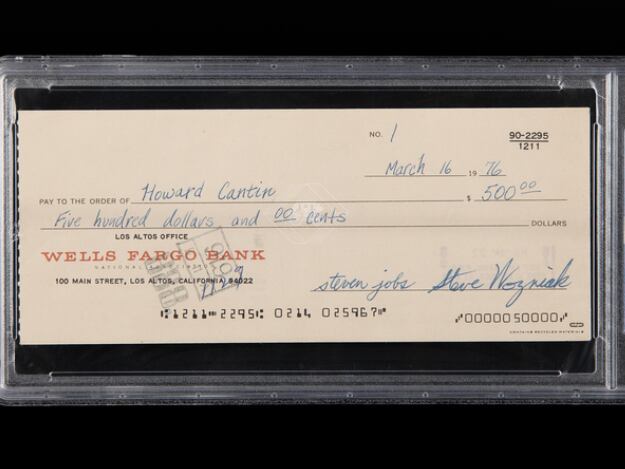 NO. 1
90-2295
1211
March 16 1976
PAY TO THE ORDER OF Howard Cantin $ 500 00
Five hundred dollars and 00 cents DOLLARS
LOS ALTOS OFFICE
WELLS FARGO BANK
NATIONAL ASSOCIATION
100 MAIN STREET, LOS ALTOS, CALIFORNIA 94022
steven jobs Steve Wozniak
⑆1211⑉2295⑆ 0214 025967⑈ ⑈0000050000⑈
CONTAINS RECYCLED MATERIALS